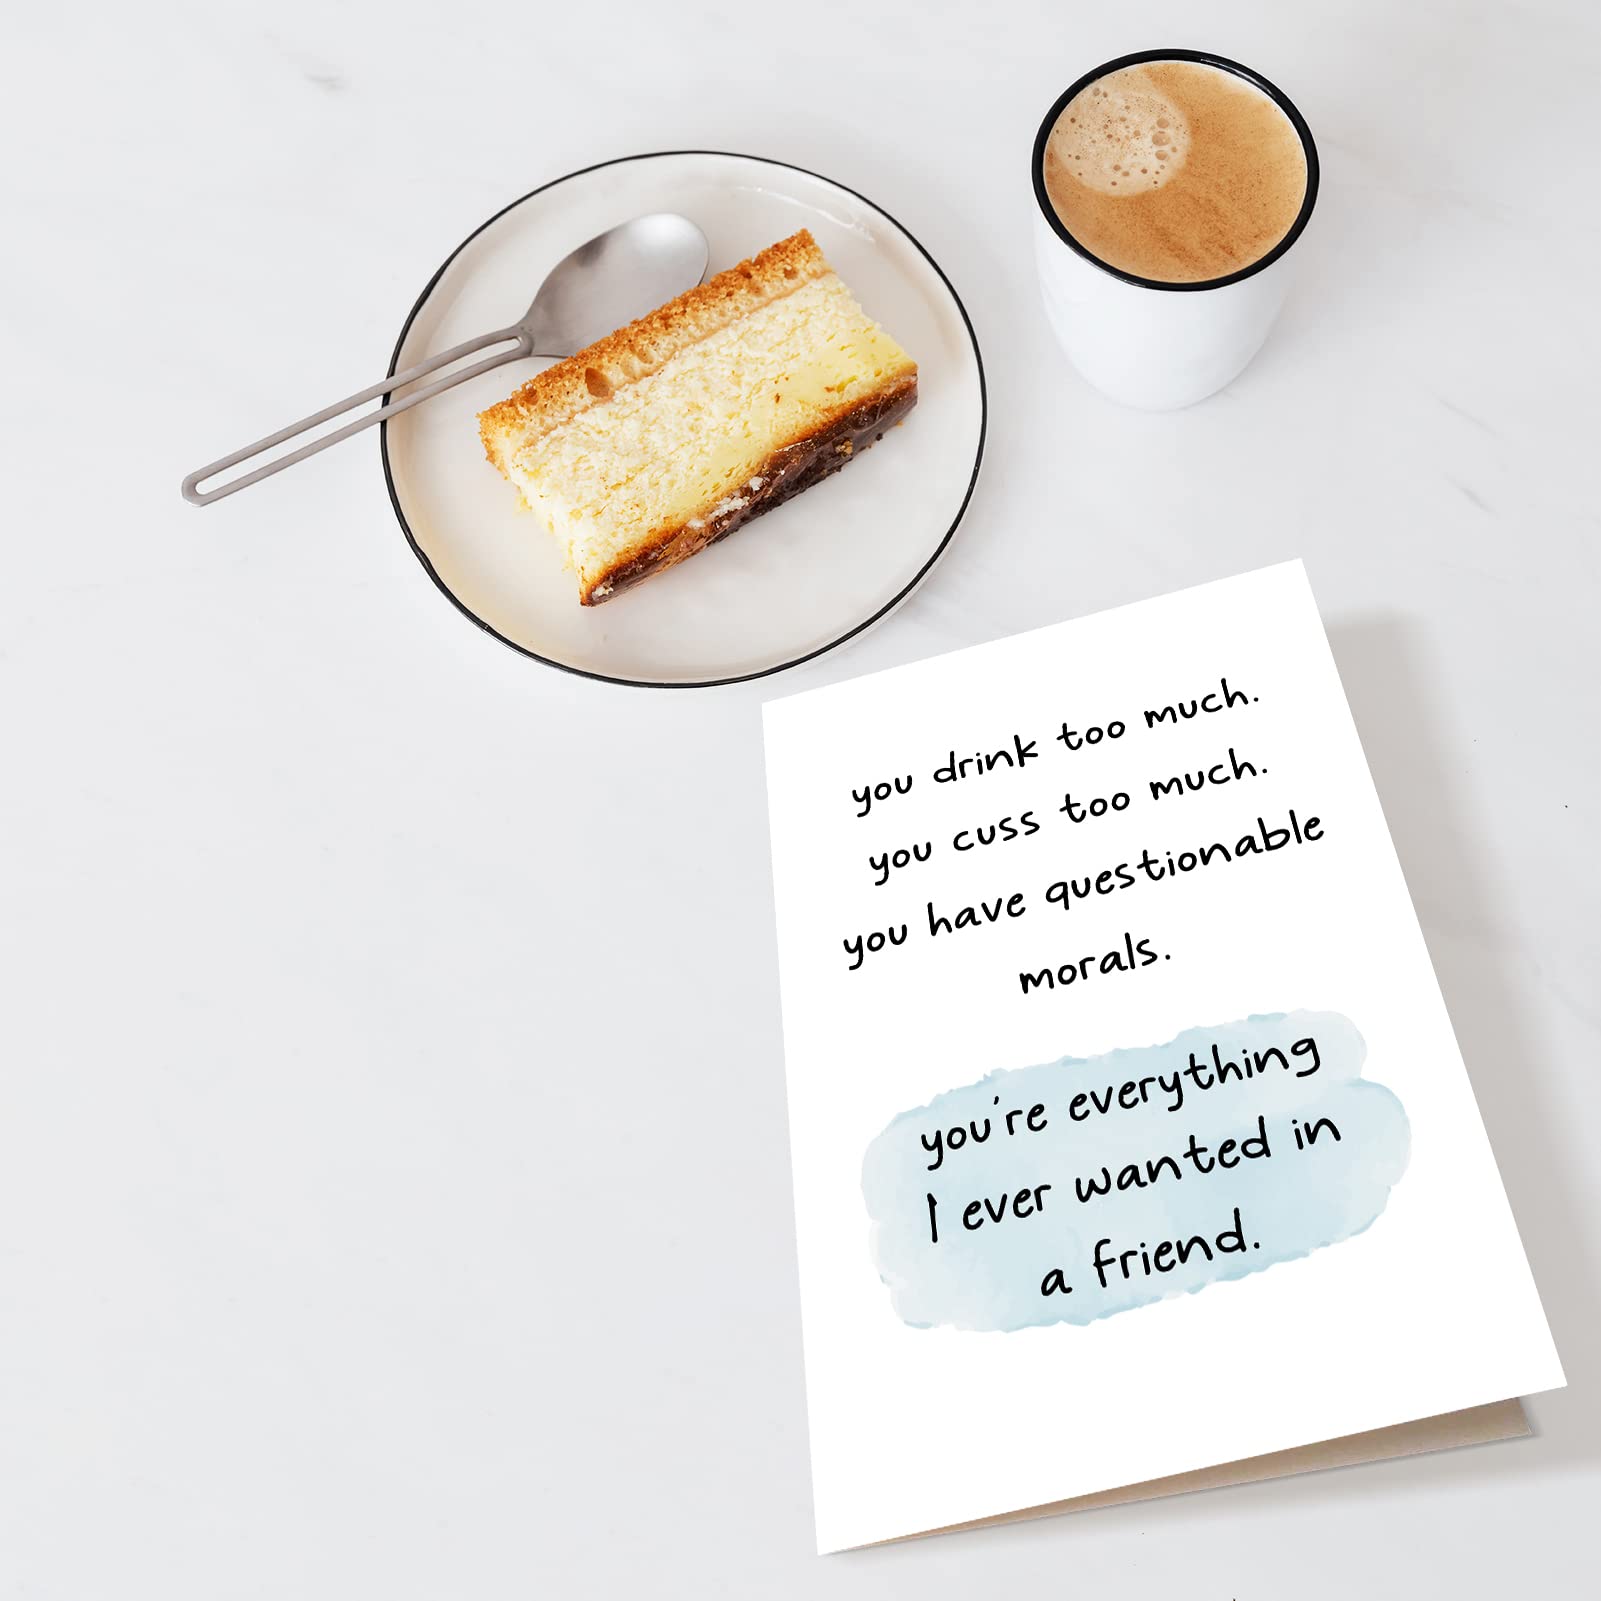 you drink too much.
you cuss too much.
you have questionable
morals.
you're everything
I ever wanted in
a friend.